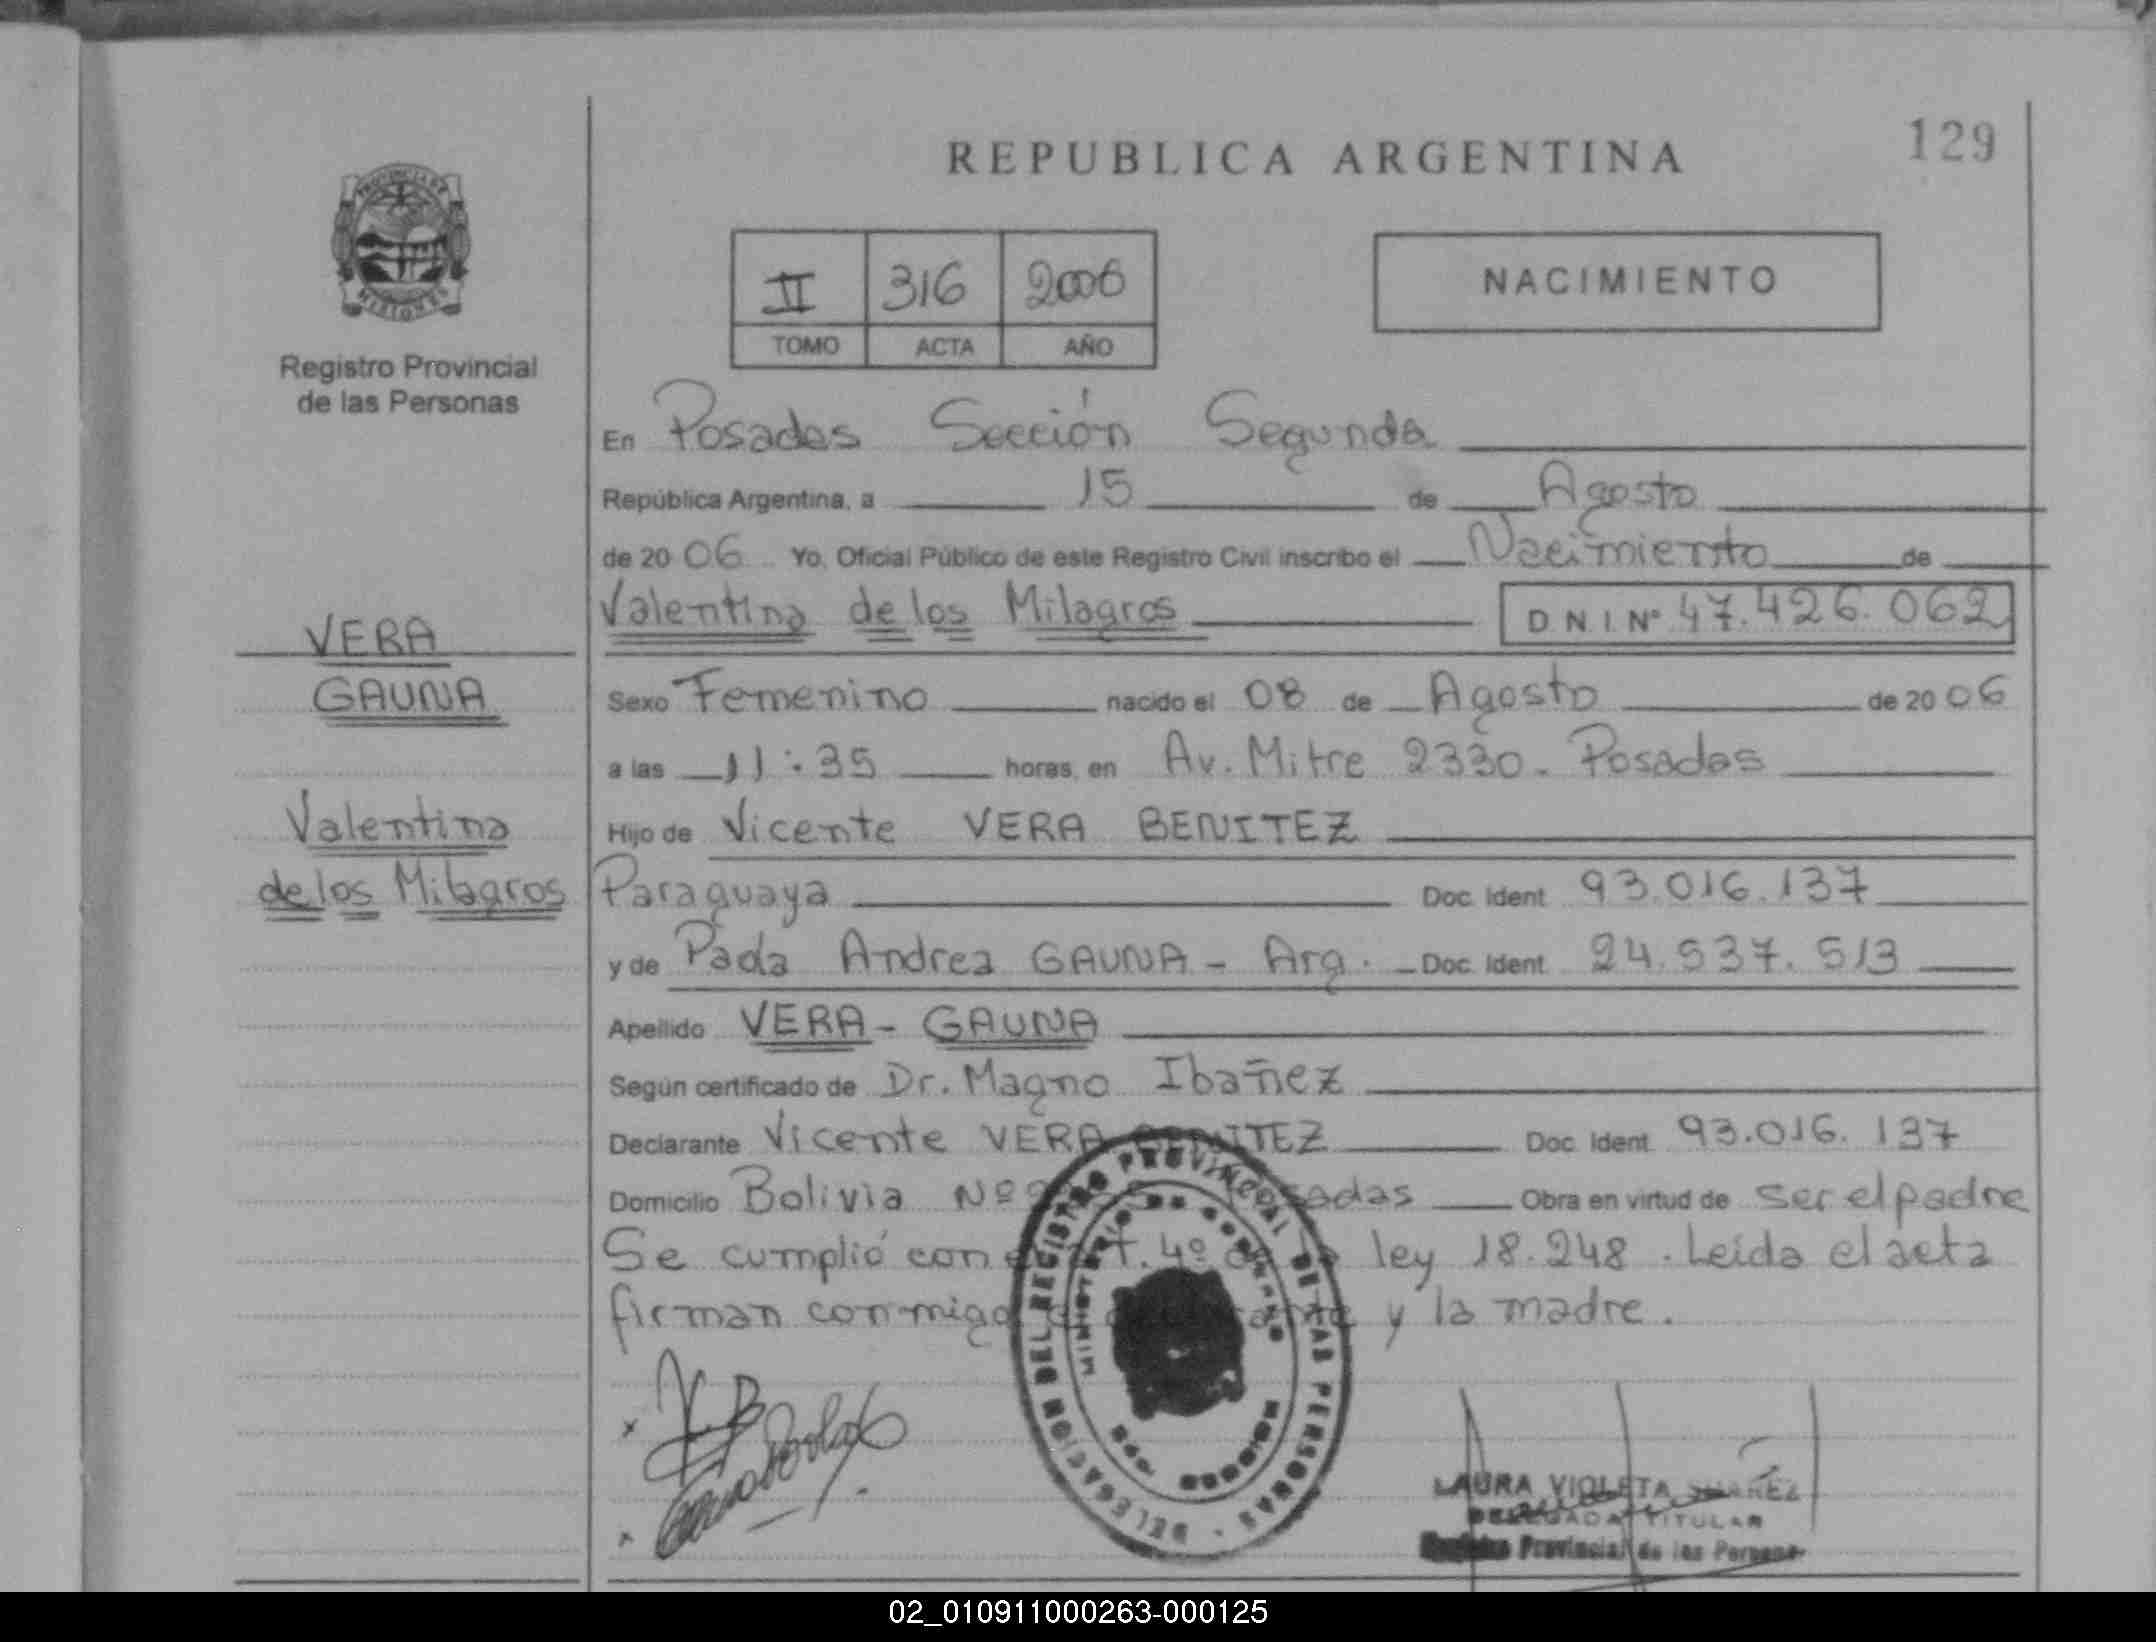 129
REPUBLICA ARGENTINA
PROVINCIA DE
MISIONES
Registro Provincial
de las Personas
II 316 2006
TOMO ACTA AÑO
NACIMIENTO
En Posadas Sección Segunda
República Argentina, a 15 de Agosto
de 20 06 Yo, Oficial Público de este Registro Civil inscribo el Nacimiento de
Valentina de los Milagros D.N.I. Nº 47.426.062
VERA
GAUNA
Valentina
de los Milagros
Sexo Femenino nacido el 08 de Agosto de 20 06
a las 11:35 horas, en Av. Mitre 2330. Posadas
Hijo de Vicente VERA BENITEZ
Paraguaya Doc. Ident. 93.016.137
y de Paola Andrea GAUNA - Arg. Doc. Ident. 24.537.513
Apellido VERA - GAUNA
Según certificado de Dr. Magno Ibañez
Declarante Vicente VERA BENITEZ Doc. Ident. 93.016.137
Domicilio Bolivia Nº Posadas Obra en virtud de ser el padre
Se cumplió con el Art. 4º de la ley 18.248. Leída el acta
firman conmigo y la madre.
DELEGACION DEL REGISTRO PROVINCIAL DE LAS PERSONAS
MINISTERIO DE GOBIERNO
LAURA VIOLETA SUAREZ
DELEGADA TITULAR
Registro Provincial de las Personas
02_010911000263-000125